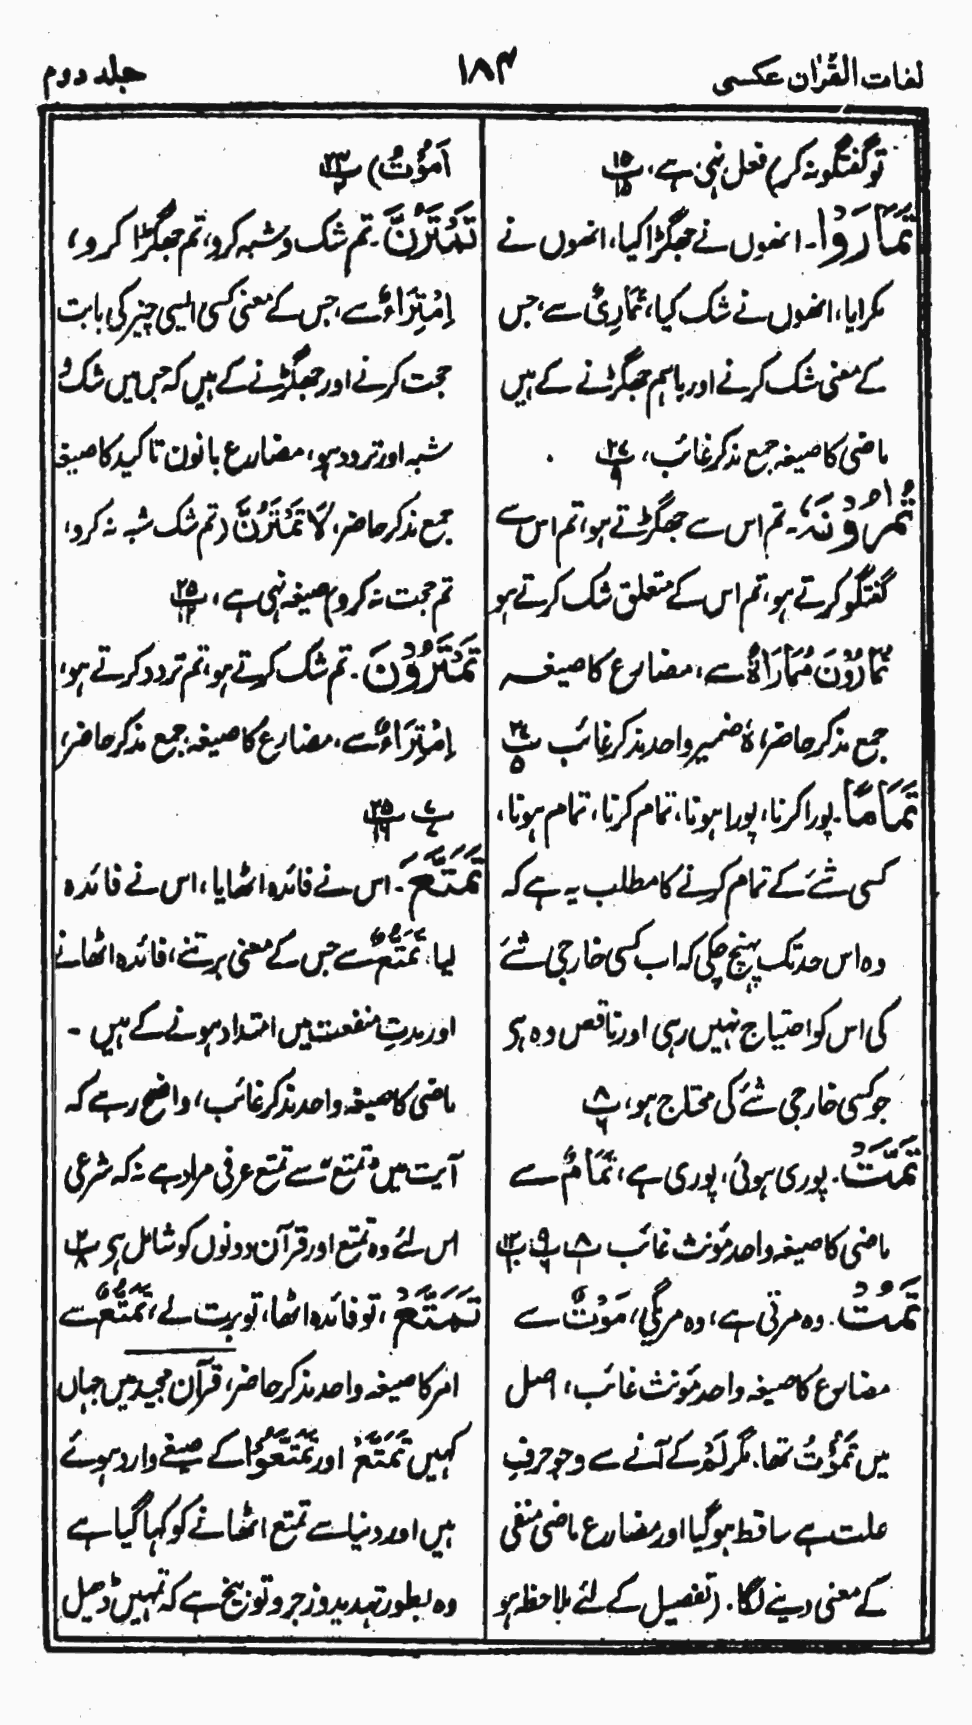 لغات القرآن عکسی
۱۸۴
جلد دوم
تو گفتگو نہ کر) فعل نہی ہے، پ ۱۵ ۱۵
تَمَارَوْا۔ انھوں نے جھگڑا کیا، انھوں نے
مکرایا، انھوں نے شک کیا، تَمَارِیٌ سے، جس
کے معنی شک کرنے اور باہم جھگڑنے کے ہیں
ماضی کا صیغہ جمع مذکر غائب، پ ۲۷ ۹
تُمٰرُوْنَہٗ۔ تم اس سے جھگڑتے ہو، تم اس سے
گفتگو کرتے ہو، تم اس کے متعلق شک کرتے ہو
تُمَارُوْنَ مُمَارَاۃٌ سے، مضارع کا صیغہ
جمع مذکر حاضر، ہٗ ضمیر واحد مذکر غائب پ ۲۷ ۵
تَمَامًا۔ پورا کرنا، پورا ہونا، تمام کرنا، تمام ہونا،
کسی شے کے تمام کرنے کا مطلب یہ ہے کہ
وہ اس حد تک پہنچ چکی کہ اب کسی خارجی شے
کی اس کو احتیاج نہیں رہی اور ناقص وہ ہی
جو کسی خارجی شے کی محتاج ہو، پ ۸ ۶
تَمَّتْ۔ پوری ہوئی، پوری ہے، تَمَامٌ سے
ماضی کا صیغہ واحد مؤنث غائب پ ۸ ۱ پ ۹ ۶ پ ۱۲ ۱۰
تَمُتْ۔ وہ مرتی ہے، وہ مرگی، مَوْتٌ سے
مضارع کا صیغہ واحد مؤنث غائب، اصل
میں تَمُوْتُ تھا۔ مگر لَمْ کے آنے سے وجوحرفِ
علت ہے ساقط ہوگیا اور مضارع ماضی منفی
کے معنی دینے لگا۔ (تفصیل کے لئے ملاحظہ ہو
اَمُوْتُ) پ ۲۳
تَمْتَرُنَّ۔ تم شک و شبہ کرو، تم جھگڑا کرو،
اِمْتِرَاءٌ سے، جس کے معنی کسی ایسی چیز کی بابت
حجت کرنے اور جھگڑنے کے ہیں کہ جس میں شک و
شبہ اور تردد ہو، مضارع بانون تاکید کا صیغہ
جمع مذکر حاضر، لَا تَمْتَرُنَّ (تم شک شبہ نہ کرو،
تم حجت نہ کرو) صیغہ نہی ہے، پ ۲۵ ۱۲
تَمْتَرُوْنَ۔ تم شک کرتے ہو، تم تردد کرتے ہو،
اِمْتِرَاءٌ سے، مضارع کا صیغہ جمع مذکر حاضر،
پ ۷ ۷ پ ۲۵ ۱۶
تَمَتَّعَ۔ اس نے فائدہ اٹھایا، اس نے فائدہ
لیا۔ تَمَتُّعٌ سے جس کے معنی برتنے، فائدہ اٹھانے
اور مدتِ منفعت میں امتداد ہونے کے ہیں۔
ماضی کا صیغہ واحد مذکر غائب، واضح رہے کہ
آیت میں تمتع سے تمتع عرفی مراد ہے نہ کہ شرعی
اس لئے وہ تمتع اور قرآن دونوں کو شامل ہی پ ۲ ۸
تَمَتَّعْ، تو فائدہ اٹھا، تو برت لے، تَمَتُّعٌ سے
امر کا صیغہ واحد مذکر حاضر، قرآن مجید میں جہاں
کہیں تَمَتَّعْ اور تَمَتَّعُوْا کے صیغے وارد ہوئے
ہیں اور دنیا سے تمتع اٹھانے کو کہا گیا ہے
وہ بطور تہدید و زجر و توبیخ ہے کہ تمہیں ڈھیل